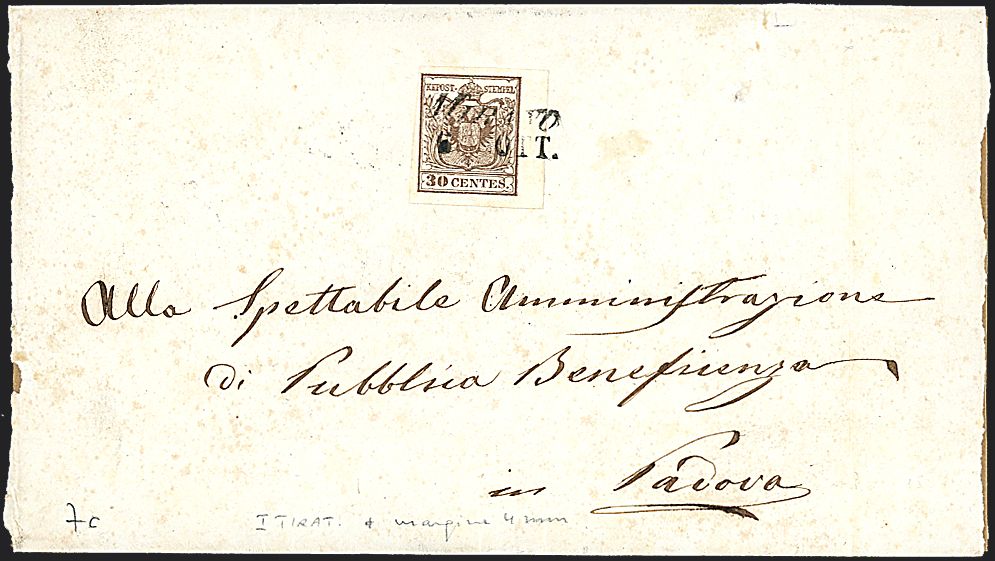 KKPOST-STEMPEL
MIRANO
OTT.
30 CENTES.
Alla Spettabile Amministrazione
di Pubblica Beneficienza
in Padova
7c
I TIRAT. + margine 4 mm